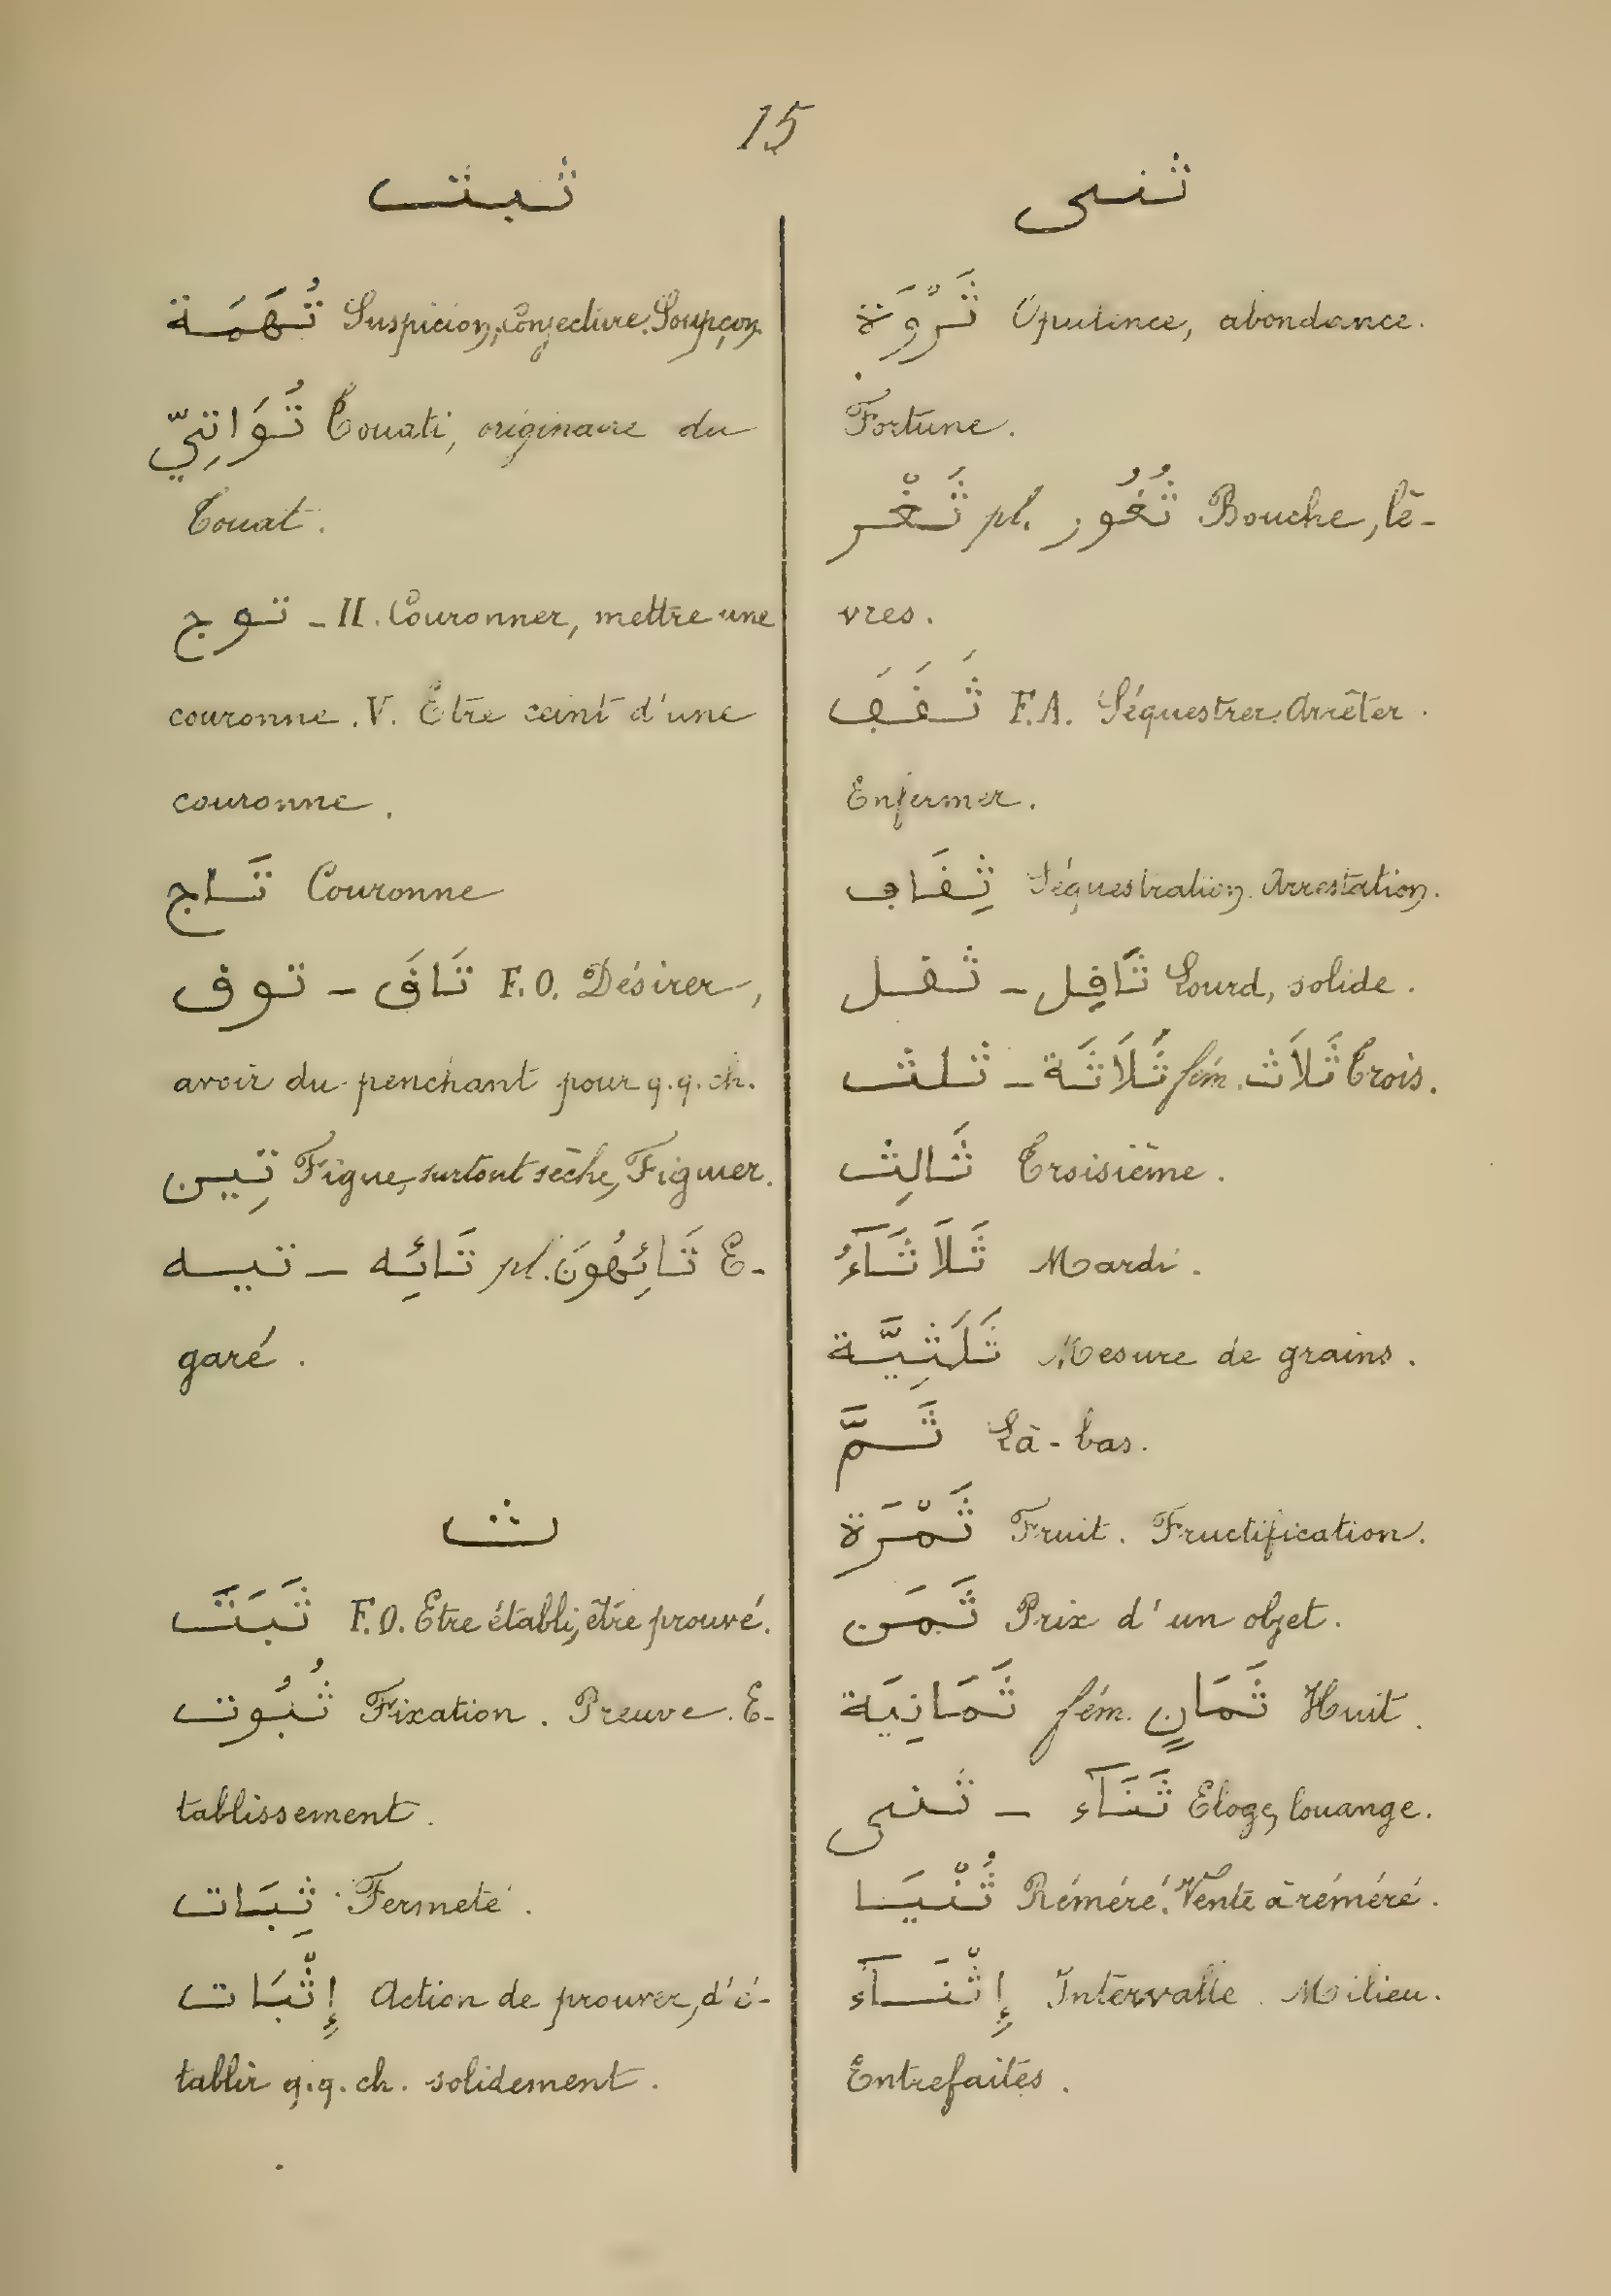 15
ثبت
تُهَمَة Suspicion, Conjecture. Soupçon.
تُوَاتِيّ Touati, originaire du
Touat.
توج – II. Couronner, mettre une
couronne. V. Etre ceint d'une
couronne.
تَاج Couronne
توڧ – تَاڧَ F. O. Désirer,
avoir du penchant pour q.q. ch.
تِين Figue, surtout sèche, Figuier.
تيه – تَائِه pl. تَائِهُونَ E-
garé.
ث
ثَبَتَ F. O. Etre établi, être prouvé.
ثُبُوت Fixation. Preuve. E-
tablissement.
ثِبَات Fermeté.
إِثْبَات Action de prouver, d'é-
tablir q.q. ch. solidement.
ثنى
ثَرْوَة Opulence, abondance.
Fortune.
ثَغْر pl. ثُغُور Bouche, lè-
vres.
ثَڧَڢَ F. A. Séquestrer. Arrêter.
Enfermer.
ثِڧَاڢ Séquestration. Arrestation.
ثڧل – ثَاڧِل Lourd, solide.
ثلث – ثَلَاثَة fém. ثَلَاث Trois.
ثَالِث Troisième.
ثَلَاثَآءُ Mardi.
ثَلَثِيَّة Mesure de grains.
ثَمَّ Là-bas.
ثَمْرَة Fruit. Fructification.
ثَمَن Prix d'un objet.
ثَمَانِيَة fém. ثَمَانٍ Huit.
ثنى – ثَنَآء Eloge, louange.
ثُنْيَا Réméré. Vente à réméré.
إِثْنَآء Intervalle. Milieu.
Entrefaites.